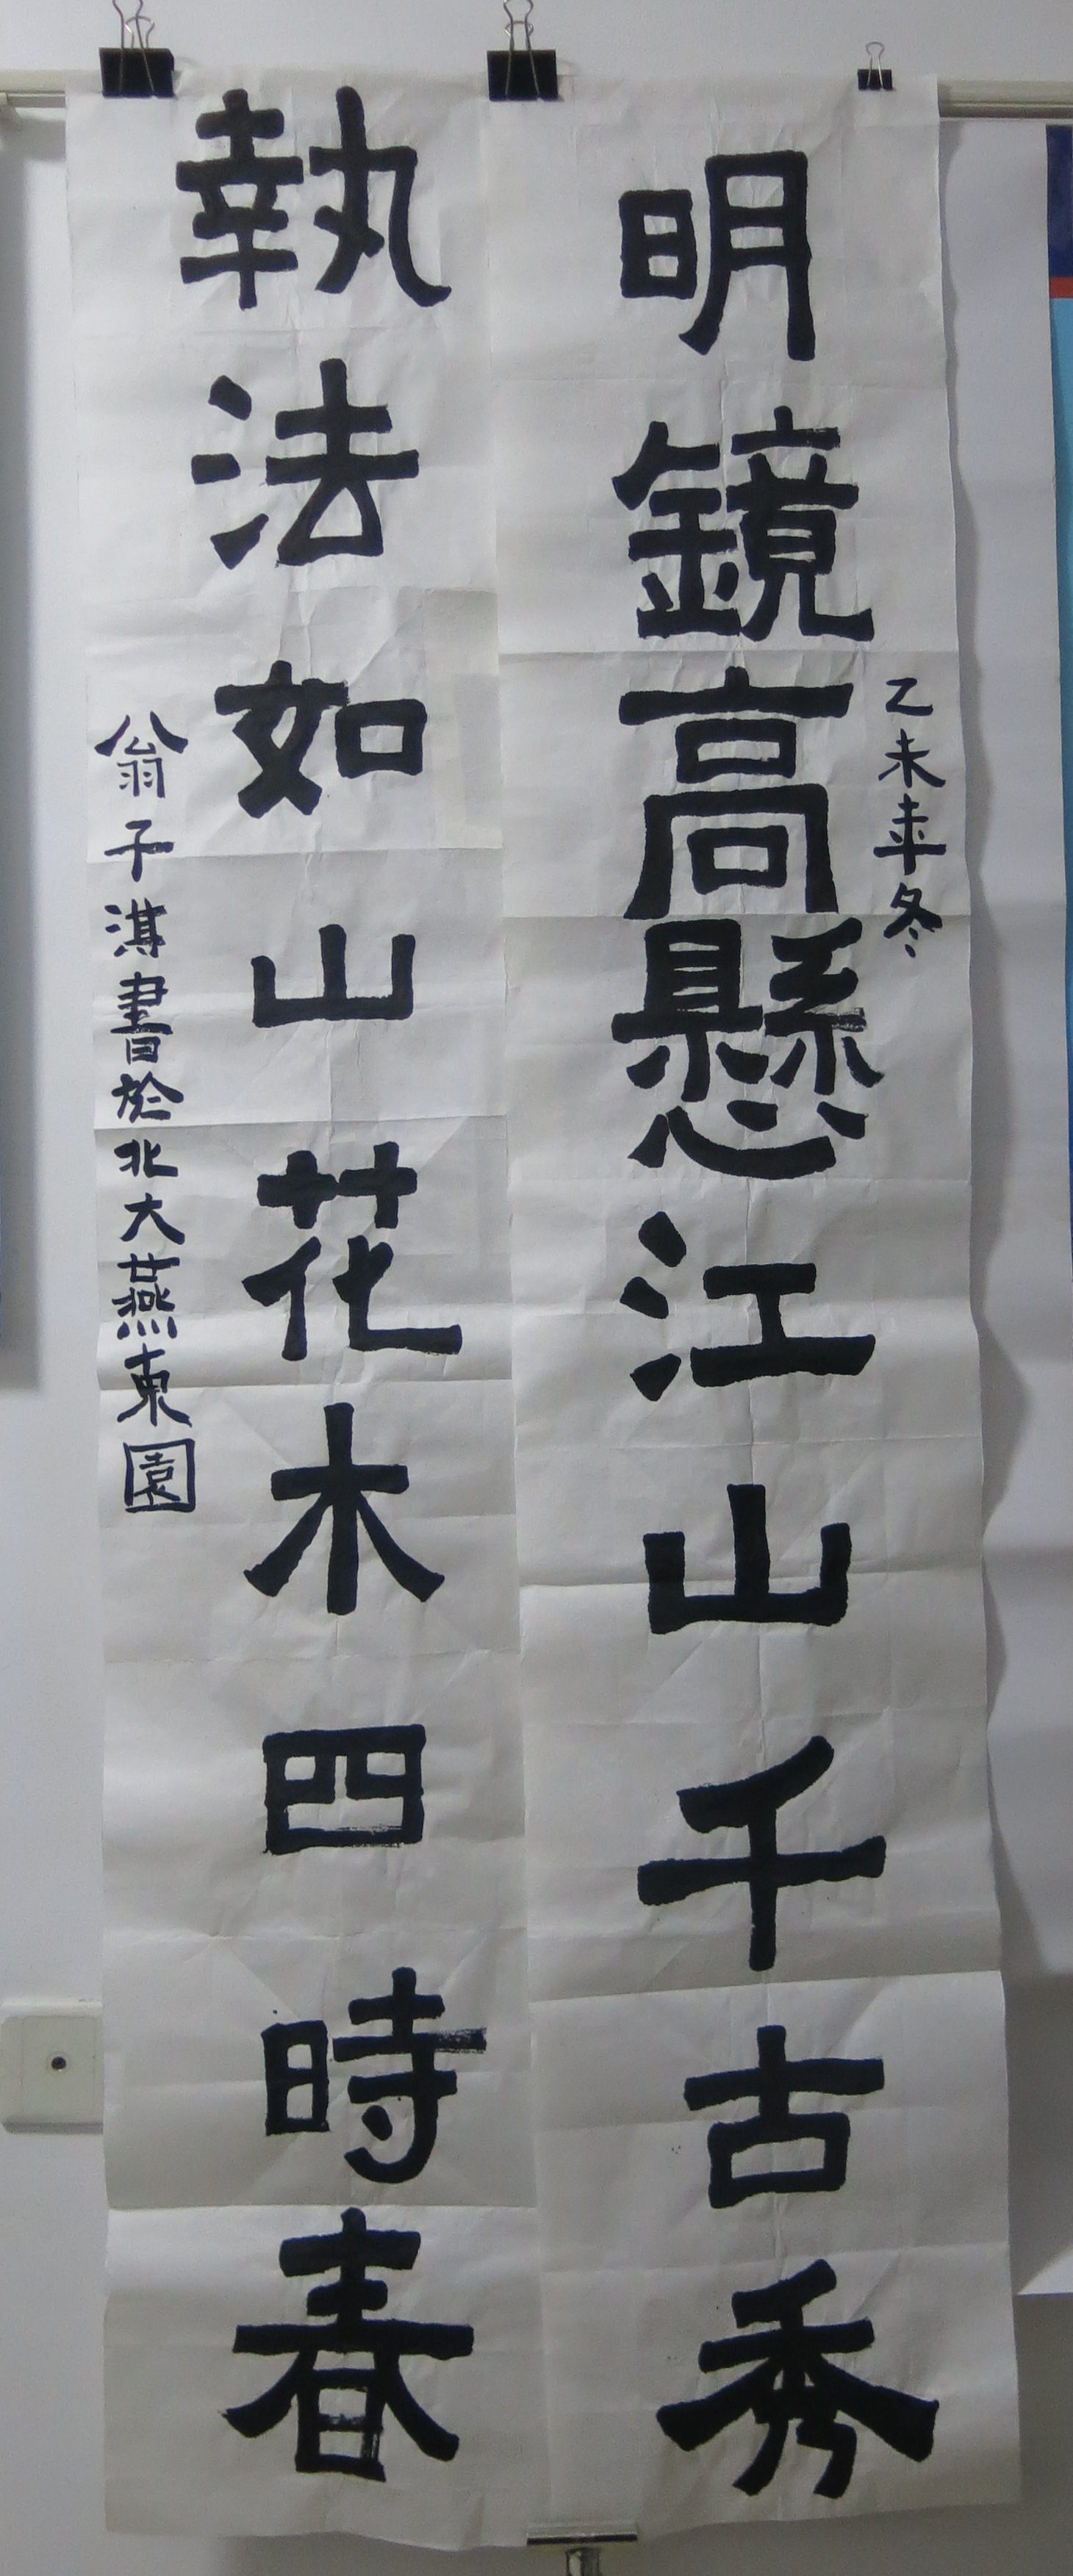 乙未年冬
明鏡高懸江山千古秀
執法如山花木四時春
翁子淇書於北大燕東園